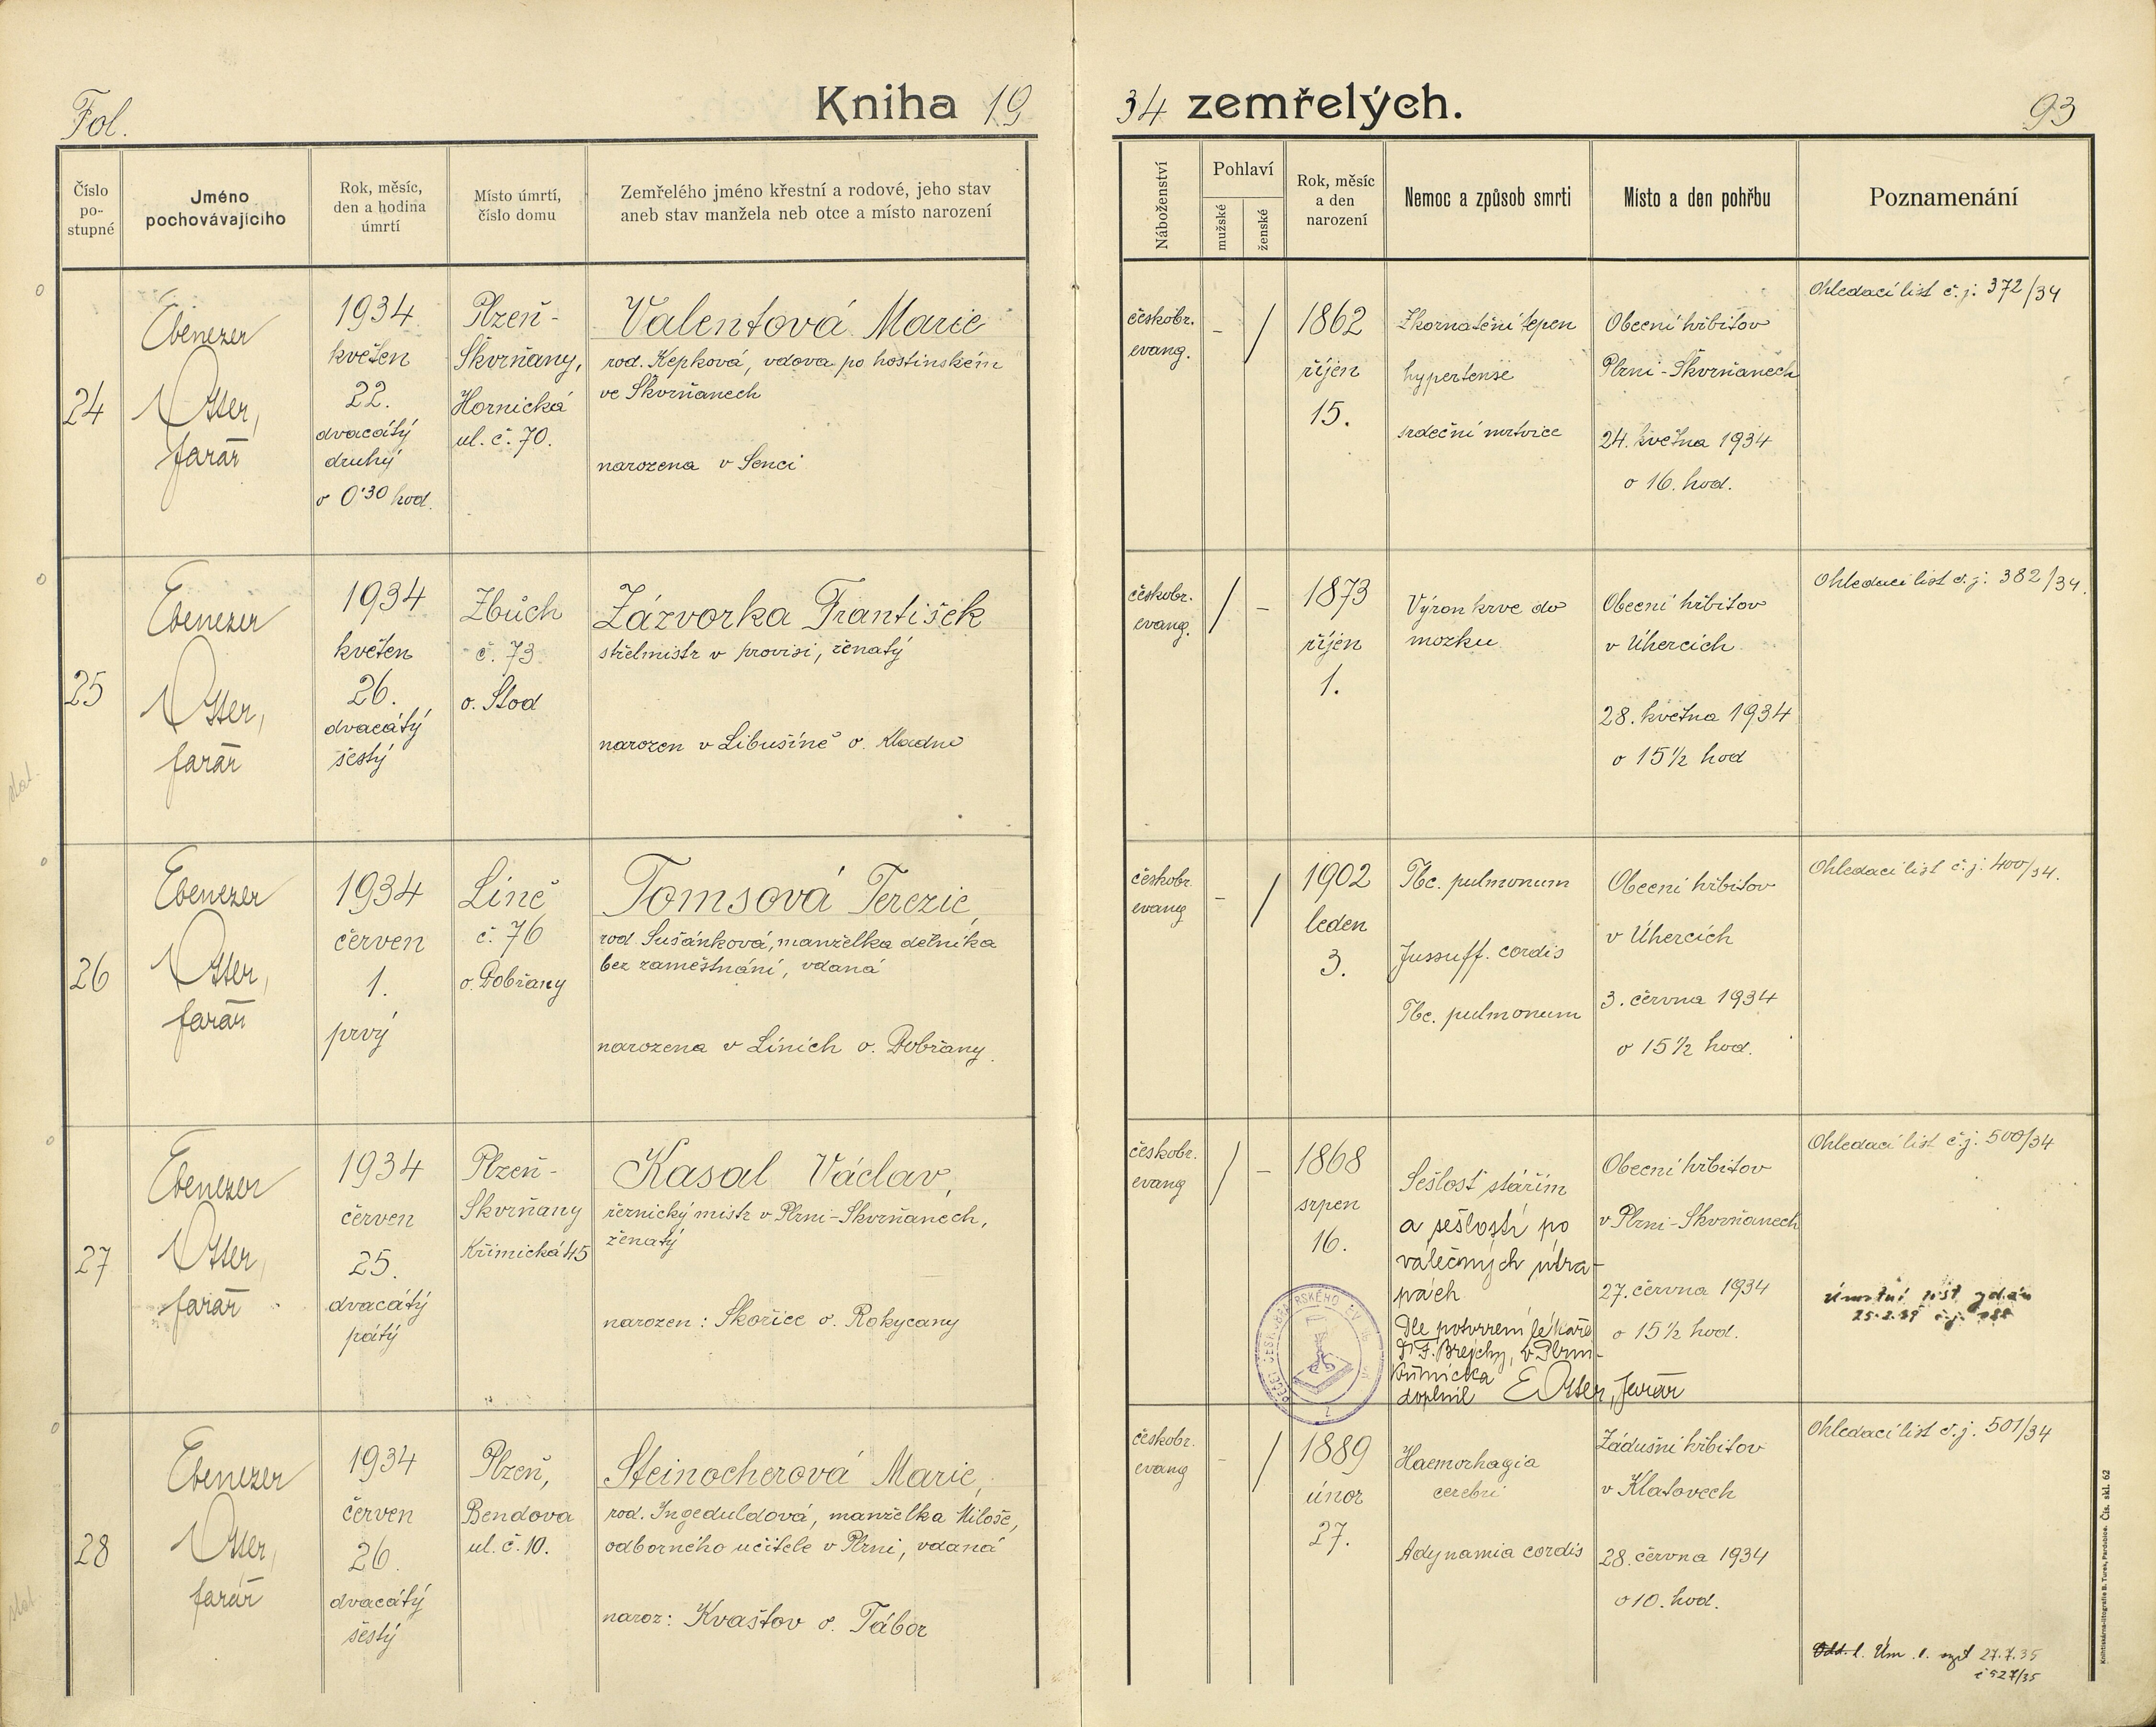 Fol.
Kniha 19
34 zemřelých.
93
Číslo po-stupné
Jméno pochovávajícího
Rok, měsíc, den a hodina úmrtí
Místo úmrtí, číslo domu
Zemřelého jméno křestní a rodové, jeho stav
aneb stav manžela neb otce a místo narození
Náboženství
Pohlaví
mužské
ženské
Rok, měsíc a den narození
Nemoc a způsob smrti
Místo a den pohřbu
Poznamenání
24
Ebenezer
Otter,
farář
1934
květen
22.
dvacátý
druhý
o 0'30 hod.
Plzeň-
Skvrňany,
Hornická
ul. č. 70.
Valentová Marie
rod. Kepková, vdova po hostinském
ve Skvrňanech
narozena v Senci
českobr.
evang.
-
/
1862
říjen
15.
Zkornatění tepen
hypertense
srdeční mrtvice
Obecní hřbitov
Plzni-Skvrňanech
24. května 1934
o 16. hod.
Ohledací list č. j. 372/34
25
Ebenezer
Otter,
farář
1934
květen
26.
dvacátý
šestý
Zbůch
č. 73
o. Stod
Zázvorka František
střelmistr v provisi, ženatý
narozen v Libušíně o. Kladno
českobr.
evang.
/
-
1873
říjen
1.
Výron krve do
mozku
Obecní hřbitov
v Úhercích
28. května 1934
o 15 1/2 hod
Ohledací list č. j. 382/34.
26
Ebenezer
Otter,
farář
1934
červen
1.
prvý
Líně
č. 76
o. Dobřany
Tomsová Terezie,
rod. Sušánková, manželka dělníka
bez zaměstnání, vdaná
narozena v Líních o. Dobřany.
českobr.
evang
-
/
1902
leden
3.
Tbc. pulmonum
Jussuff. cordis
Tbc. pulmonum
Obecní hřbitov
v Úhercích
3. června 1934
o 15 1/2 hod.
Ohledací list č. j. 400/34.
27
Ebenezer
Otter,
farář
1934
červen
25.
dvacátý
pátý
Plzeň-
Skvrňany
Křimická 45
Kasal Václav,
řeznický mistr v Plzni-Skvrňanech,
ženatý
narozen: Skořice o. Rokycany
českobr.
evang
/
-
1868
srpen
16.
Sešlost stářím
a sešlostí po
válečných útra-
pách
Dle potvrzení lékaře
Dr F. Brejchy, v Plzni-
Křimická
doplnil E Otter, farář
Obecní hřbitov
v Plzni-Skvrňanech
27. června 1934
o 15 1/2 hod.
Ohledací list č. j. 500/34
Úmrtní list vydán
28
Ebenezer
Otter,
farář
1934
červen
26.
dvacátý
šestý
Plzeň,
Bendova
ul. č. 10.
Steinocherová Marie,
rod. Ingeduldová, manželka Miloše,
odborného učitele v Plzni, vdaná
naroz: Kvaštov o. Tábor
českobr.
evang
-
/
1889
únor
27.
Haemorhagia
cerebri
Adynamia cordis
Zádušní hřbitov
v Klatovech
28. června 1934
o 10. hod.
Ohledací list č. j. 501/34
Úm. l. 27.7.35
č 527/35
Knihtiskárna-litografie B. Turek, Pardubice. Čís. skl. 62